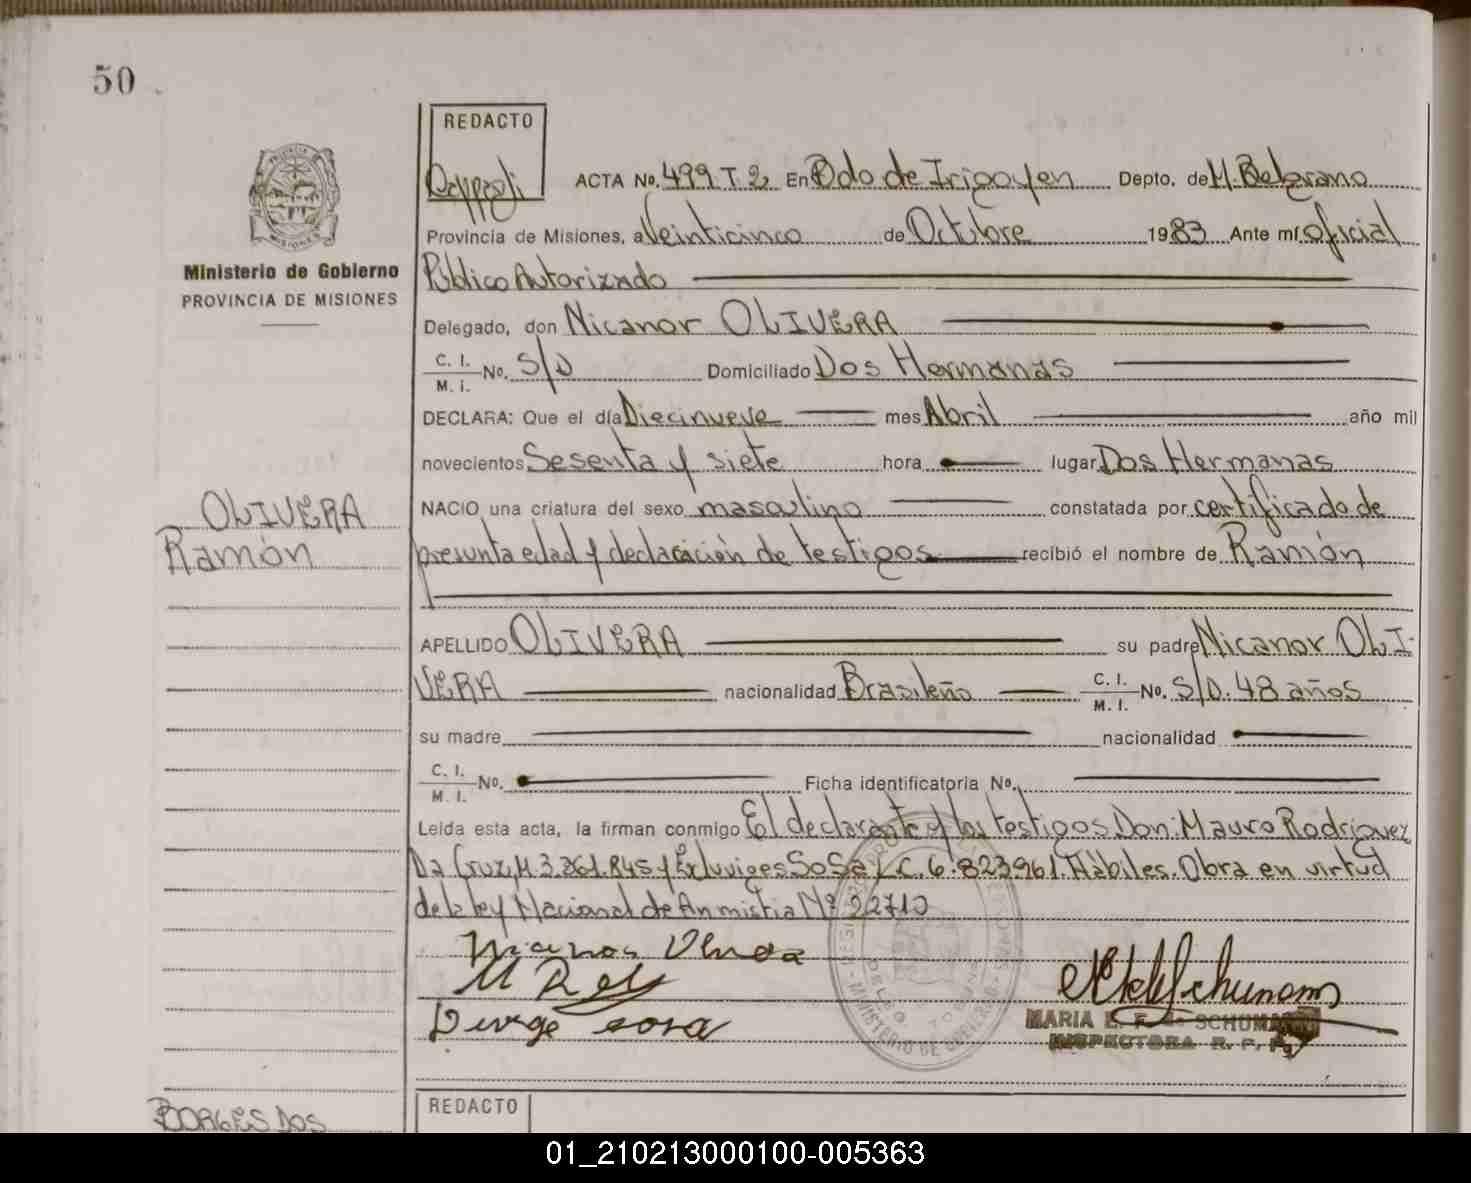 50
REDACTO
ACTA No. 499 T 2 En Bdo de Irigoyen Depto. de M. Belgrano
Ministerio de Gobierno
PROVINCIA DE MISIONES
Provincia de Misiones, a Veinticinco de Octubre 1983 Ante mí Oficial
Público Autorizado
Delegado, don Nicanor OLIVERA
C. I.
M. I. No. S/D Domiciliado Dos Hermanas
DECLARA: Que el día Diecinueve mes Abril año mil
novecientos Sesenta y siete hora lugar Dos Hermanas
OLIVERA
Ramón
NACIO una criatura del sexo masculino constatada por certificado de
presunta edad y declaración de testigos recibió el nombre de Ramón
APELLIDO OLIVERA su padre Nicanor OLI-
VERA nacionalidad Brasileño C. I.
M. I. No. S/D. 48 años
su madre nacionalidad
C. I.
M. I. No. Ficha identificatoria No.
Leida esta acta, la firman conmigo El declarante y los testigos Don: Mauro Rodriguez
Da Cruz, M. 3.261.845 y Exluviges Sosa, C. 6.823961. Hábiles. Obra en virtud
de la ley Nacional de Anmistia Nº 22710
MARIA E. F. de SCHUMANN
INSPECTORA R. P. P.
BORGES DOS
REDACTO
01_210213000100-005363